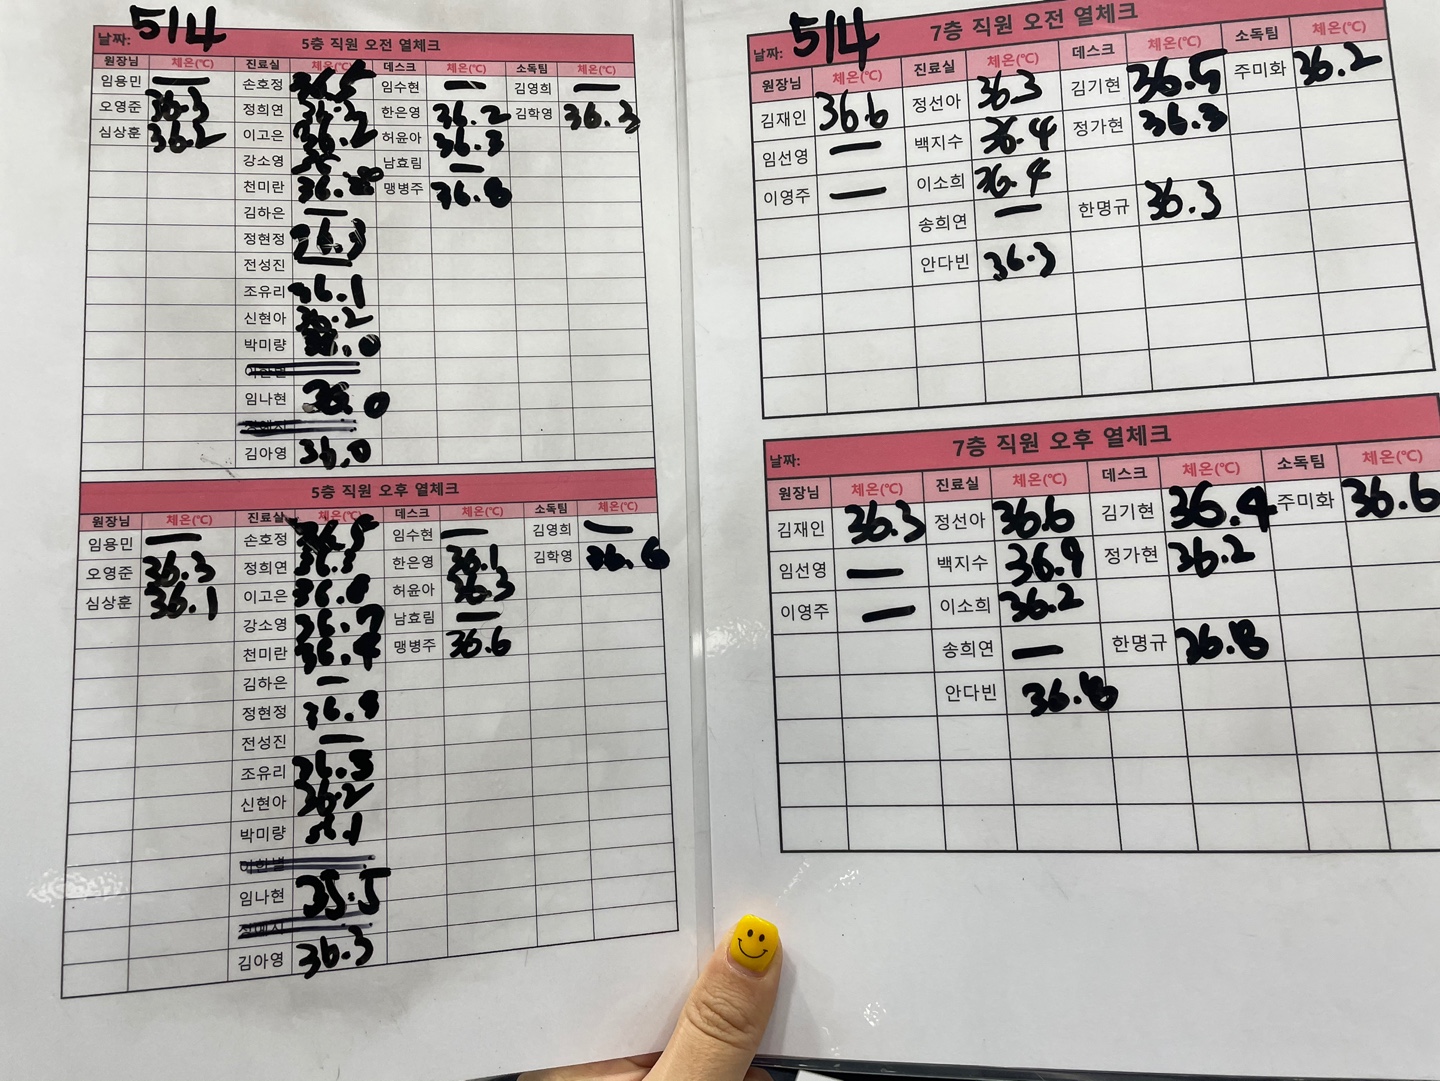 날짜: 5/4 5층 직원 오전 열체크
원장님 체온(℃) 진료실 체온(℃) 데스크 체온(℃) 소독팀 체온(℃)
임용민 — 손호정 36.5 임수현 — 김영희 —
오영준 36.3 정희연 36.3 한은영 36.2 김학영 36.3
심상훈 36.2 이고은 36.2 허윤아 36.3
강소영 남효림 —
천미란 36. 맹병주 36.8
김하은 —
정현정 36.3
전성진 —
조유리 36.1
신현아 36.2
박미량 36.0
임나현 36.0
김아영 36.0
5층 직원 오후 열체크
원장님 체온(℃) 진료실 체온(℃) 데스크 체온(℃) 소독팀 체온(℃)
임용민 — 손호정 36.5 임수현 — 김영희 —
오영준 36.3 정희연 36.3 한은영 36.1 김학영 36.6
심상훈 36.1 이고은 36.8 허윤아 36.3
강소영 36.7 남효림 —
천미란 36.4 맹병주 36.6
김하은 —
정현정 36.8
전성진 —
조유리 36.5
신현아 36.2
박미량 36.1
임나현 35.5
김아영 36.3
날짜: 5/4 7층 직원 오전 열체크
원장님 체온(℃) 진료실 체온(℃) 데스크 체온(℃) 소독팀 체온(℃)
김재인 36.6 정선아 36.3 김기현 36.5 주미화 36.2
임선영 — 백지수 36.4 정가현 36.3
이영주 — 이소희 36.4
송희연 — 한명규 36.3
안다빈 36.3
날짜: 7층 직원 오후 열체크
원장님 체온(℃) 진료실 체온(℃) 데스크 체온(℃) 소독팀 체온(℃)
김재인 36.3 정선아 36.6 김기현 36.4 주미화 36.6
임선영 — 백지수 36.9 정가현 36.2
이영주 — 이소희 36.2
송희연 — 한명규 36.8
안다빈 36.8